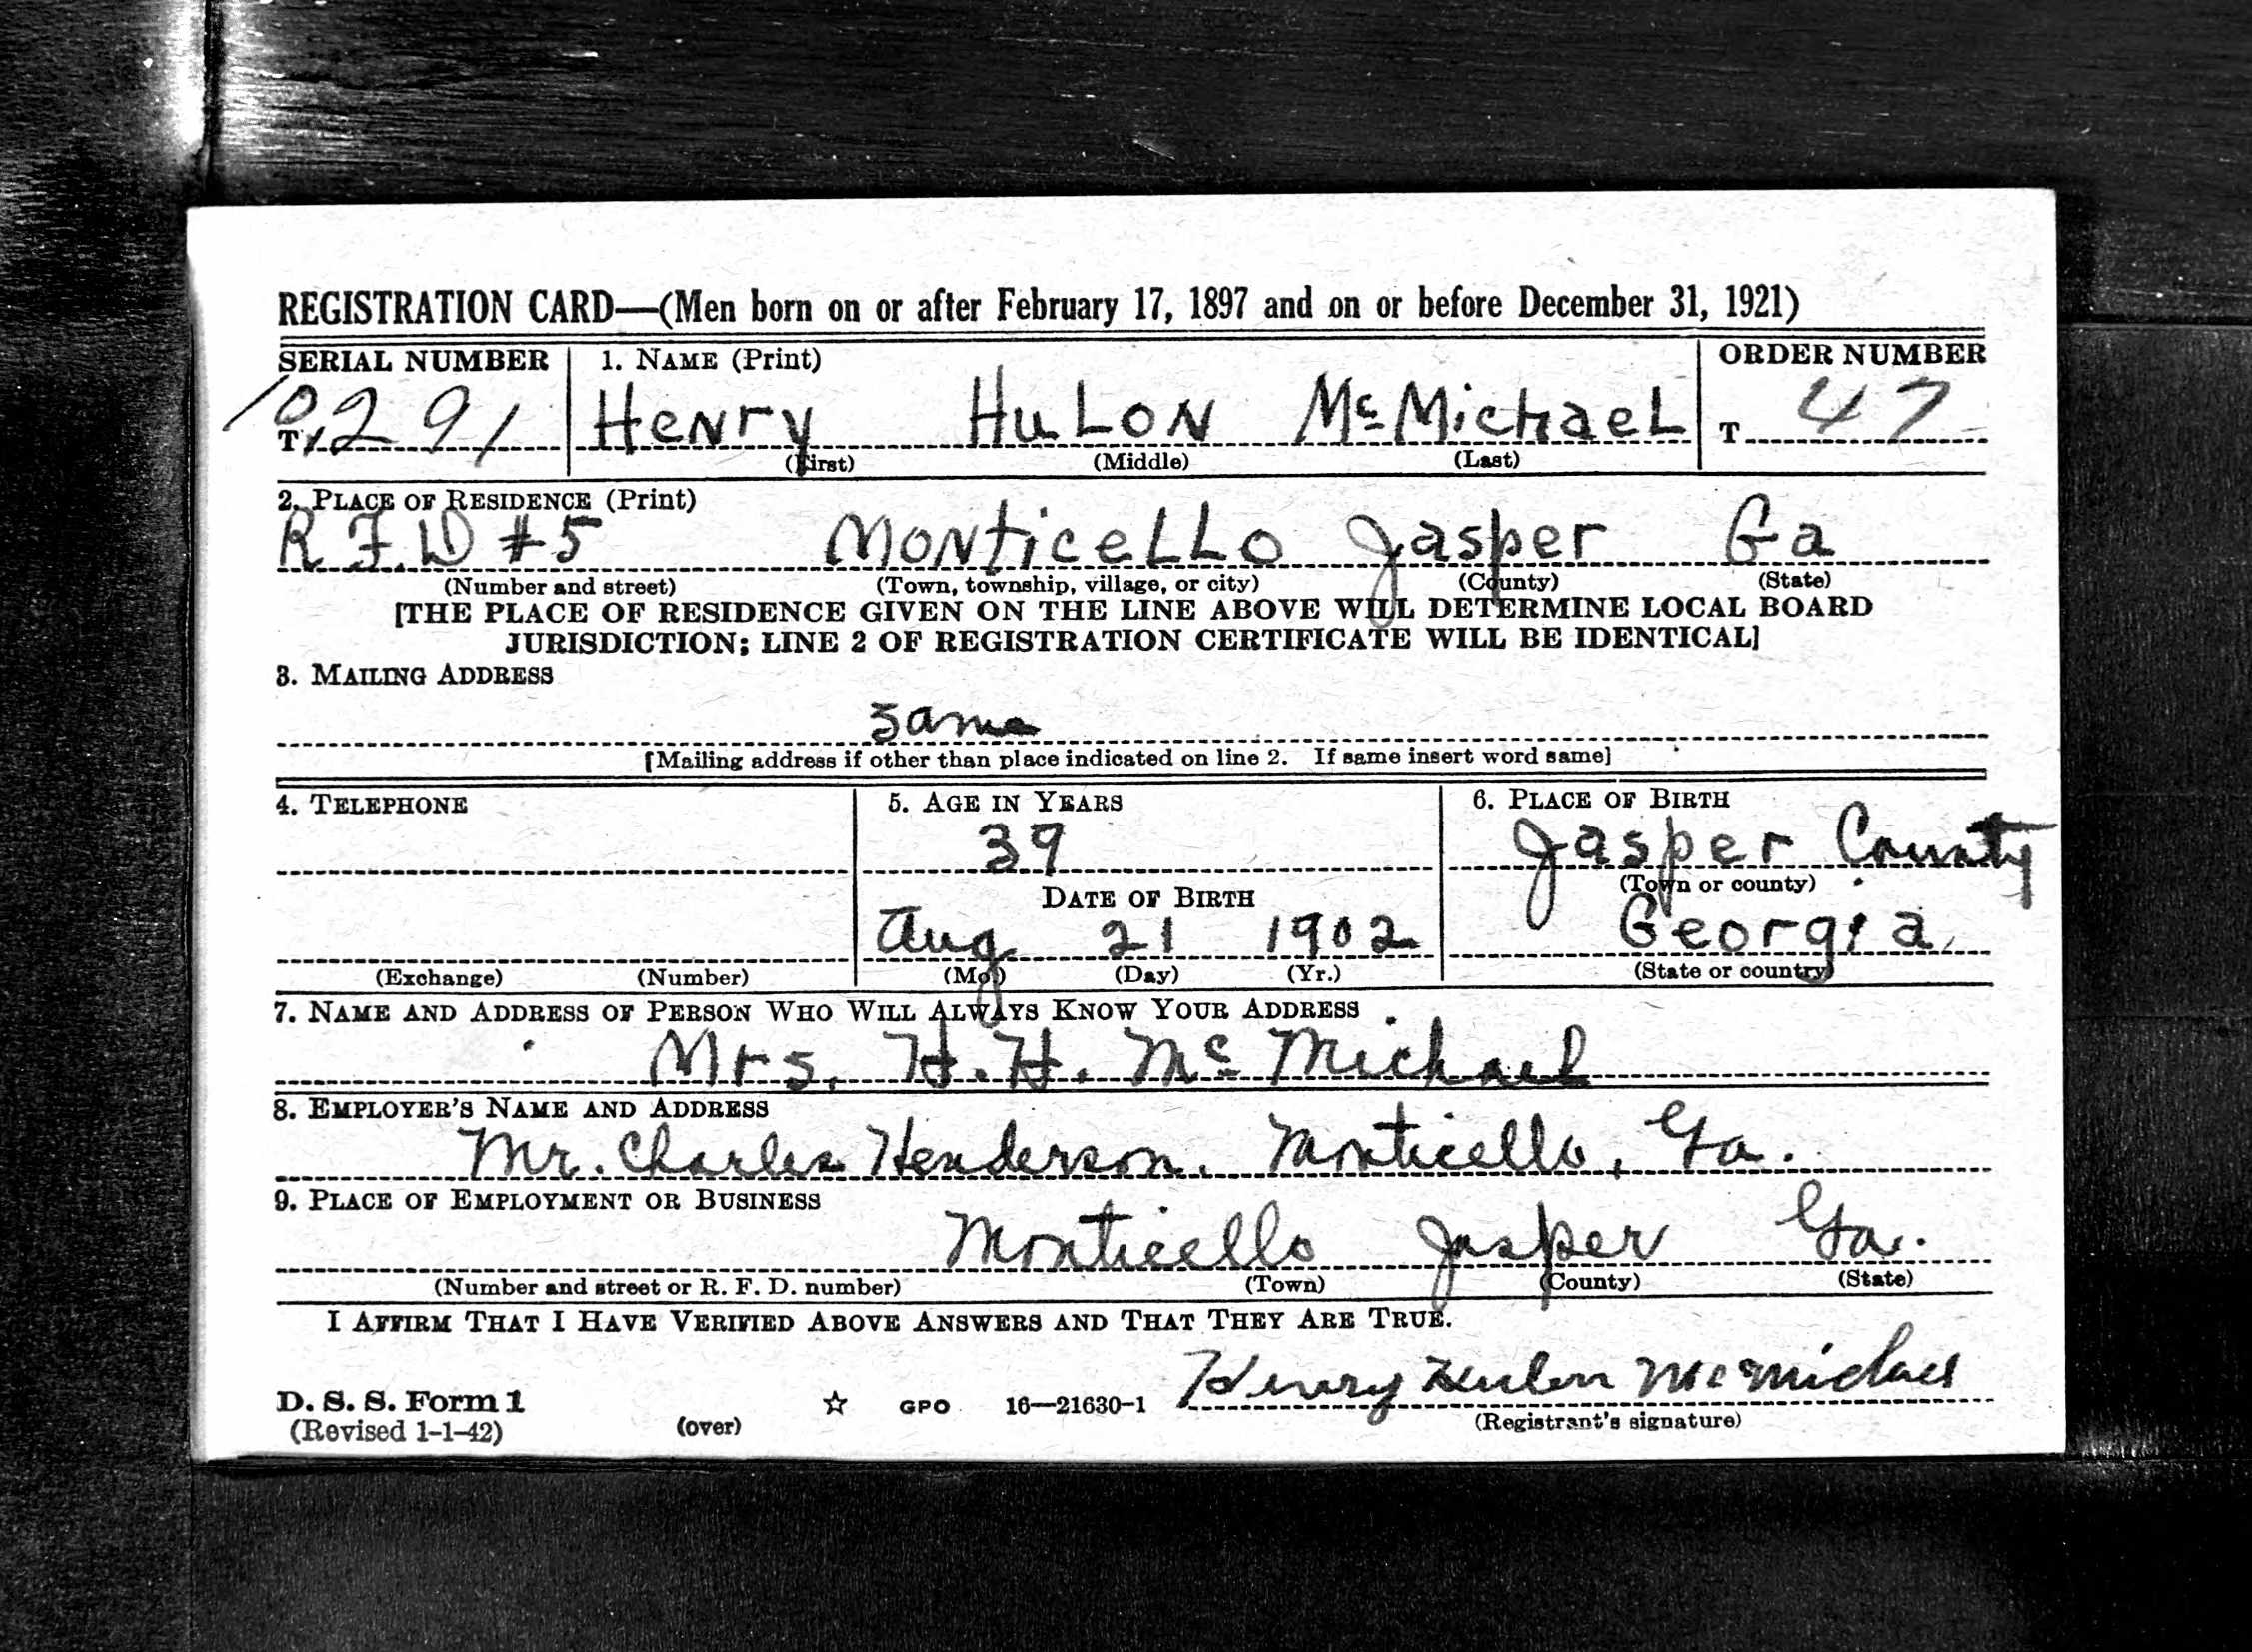 REGISTRATION CARD—(Men born on or after February 17, 1897 and on or before December 31, 1921)
SERIAL NUMBER 1. NAME (Print) ORDER NUMBER
T 10,291 Henry Hulon McMichael T 47
(First) (Middle) (Last)
2. PLACE OF RESIDENCE (Print)
R.F.D #5 Monticello Jasper Ga
(Number and street) (Town, township, village, or city) (County) (State)
[THE PLACE OF RESIDENCE GIVEN ON THE LINE ABOVE WILL DETERMINE LOCAL BOARD
JURISDICTION; LINE 2 OF REGISTRATION CERTIFICATE WILL BE IDENTICAL]
3. MAILING ADDRESS
Same
[Mailing address if other than place indicated on line 2. If same insert word same]
4. TELEPHONE 5. AGE IN YEARS 6. PLACE OF BIRTH
39 Jasper County
DATE OF BIRTH (Town or county)
Aug 21 1902 Georgia
(Exchange) (Number) (Mo.) (Day) (Yr.) (State or country)
7. NAME AND ADDRESS OF PERSON WHO WILL ALWAYS KNOW YOUR ADDRESS
Mrs. H. H. McMichael
8. EMPLOYER'S NAME AND ADDRESS
Mr. Charles Henderson, Monticello, Ga.
9. PLACE OF EMPLOYMENT OR BUSINESS
Monticello Jasper Ga.
(Number and street or R. F. D. number) (Town) (County) (State)
I AFFIRM THAT I HAVE VERIFIED ABOVE ANSWERS AND THAT THEY ARE TRUE.
Henry Hulon McMichael
D. S. S. Form 1 ☆ GPO 16—21630-1
(Revised 1-1-42) (over) (Registrant's signature)